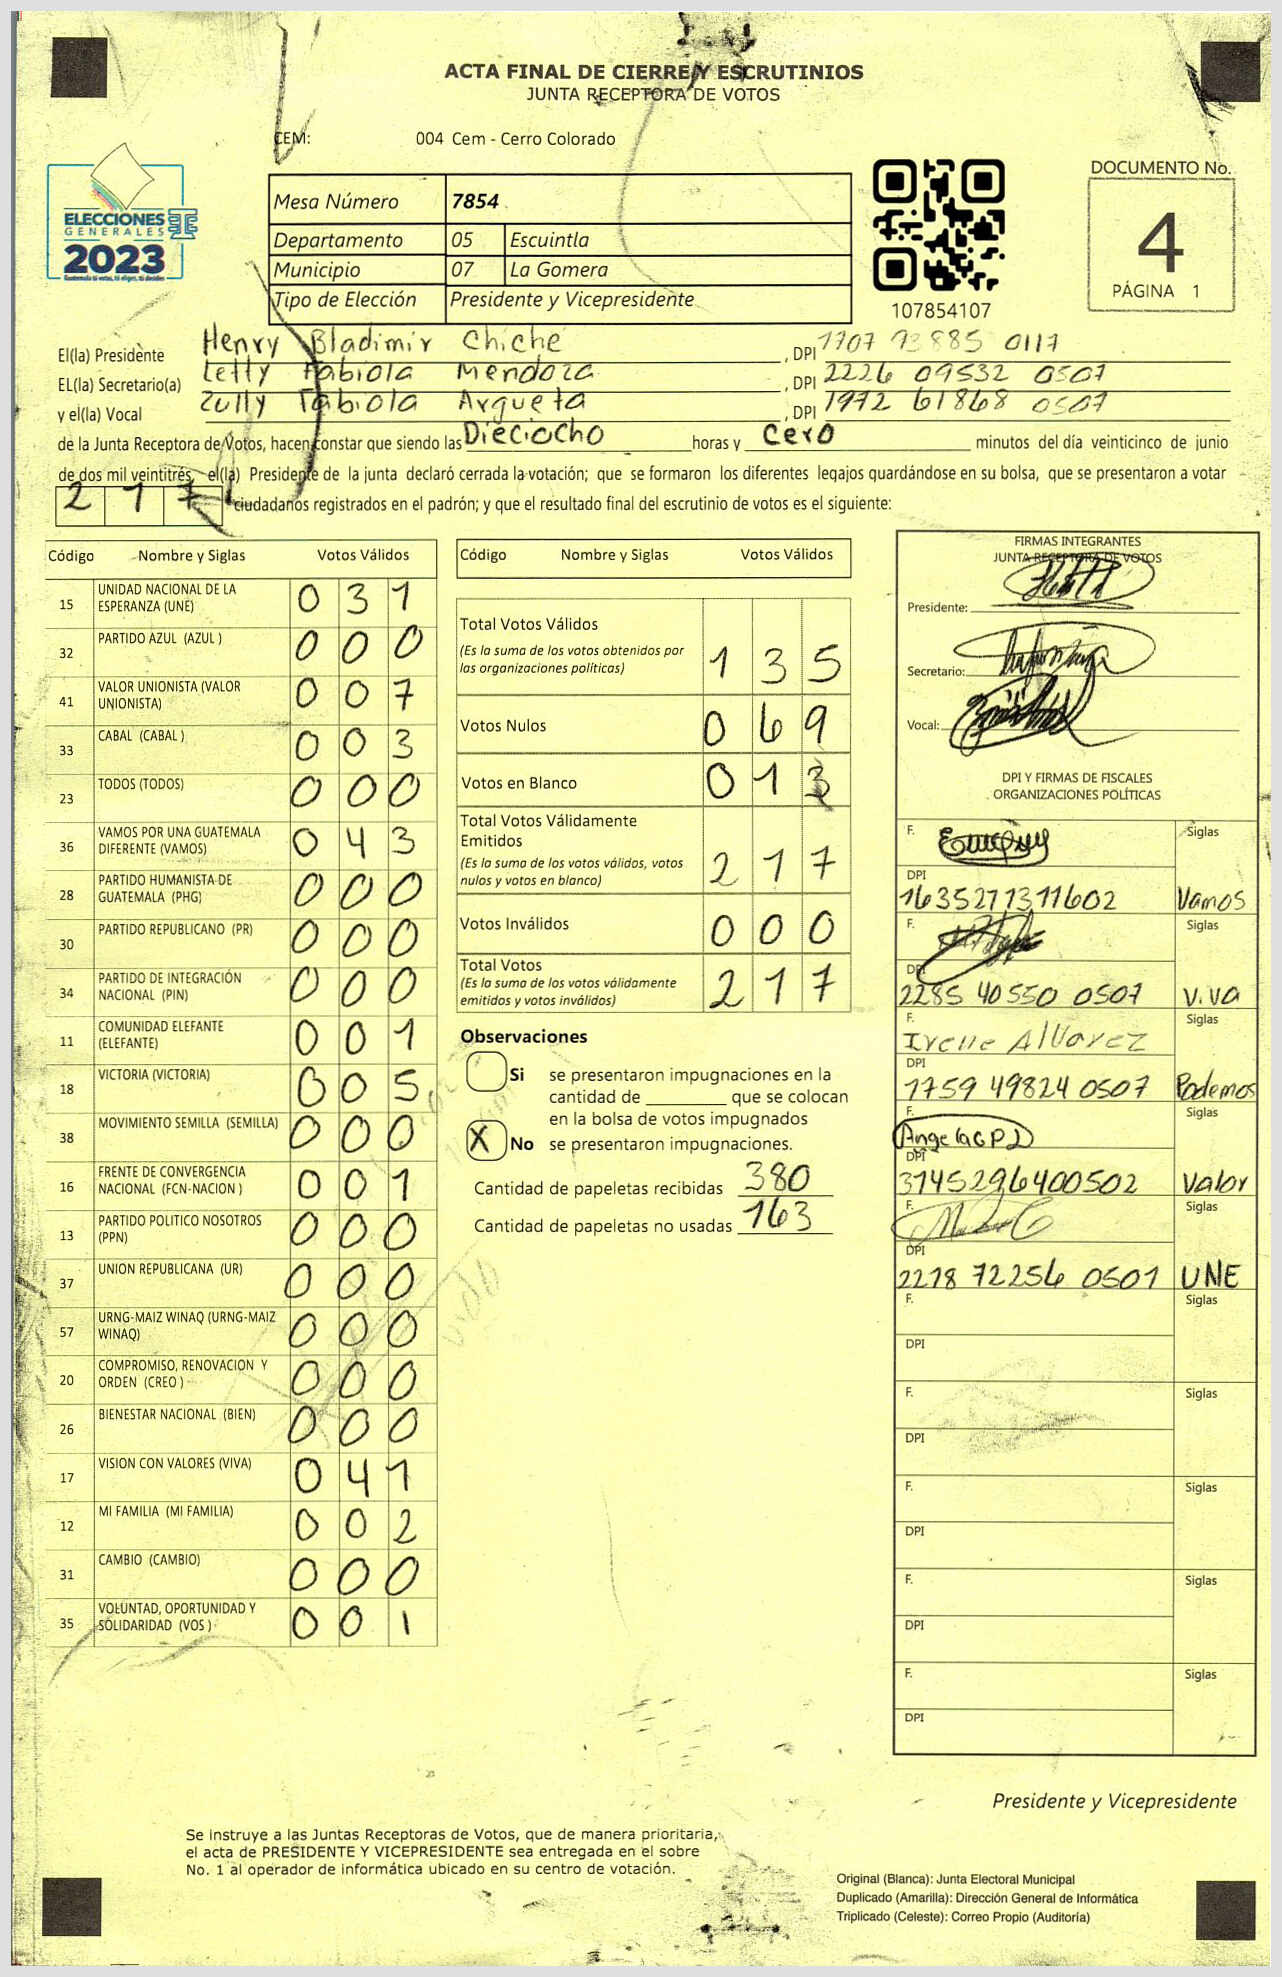 ACTA FINAL DE CIERRE Y ESCRUTINIOS
JUNTA RECEPTORA DE VOTOS
CEM: 004 Cem - Cerro Colorado
ELECCIONES
GENERALES
2023
Guatemala tú votas, tú eliges, tú decides
Mesa Número 7854
Departamento 05 Escuintla
Municipio 07 La Gomera
Tipo de Elección Presidente y Vicepresidente
107854107
DOCUMENTO No.
4
PÁGINA 1
El(la) Presidente Henry Bladimir Chiché, DPI 1707 93885 0117
EL(la) Secretario(a) Letty Fabiola Mendoza, DPI 2226 09532 0507
y el(la) Vocal Zully Fabiola Argueta, DPI 1972 61868 0507
de la Junta Receptora de Votos, hacen constar que siendo las Dieciocho horas y cero minutos del día veinticinco de junio
de dos mil veintitrés, el(la) Presidente de la junta declaró cerrada la votación; que se formaron los diferentes legajos guardándose en su bolsa, que se presentaron a votar
217 ciudadanos registrados en el padrón; y que el resultado final del escrutinio de votos es el siguiente:
Código Nombre y Siglas Votos Válidos
15 UNIDAD NACIONAL DE LA ESPERANZA (UNE) 031
32 PARTIDO AZUL (AZUL ) 000
41 VALOR UNIONISTA (VALOR UNIONISTA) 007
33 CABAL (CABAL ) 003
23 TODOS (TODOS) 000
36 VAMOS POR UNA GUATEMALA DIFERENTE (VAMOS) 043
28 PARTIDO HUMANISTA DE GUATEMALA (PHG) 000
30 PARTIDO REPUBLICANO (PR) 000
34 PARTIDO DE INTEGRACIÓN NACIONAL (PIN) 000
11 COMUNIDAD ELEFANTE (ELEFANTE) 001
18 VICTORIA (VICTORIA) 005
38 MOVIMIENTO SEMILLA (SEMILLA) 000
16 FRENTE DE CONVERGENCIA NACIONAL (FCN-NACION ) 001
13 PARTIDO POLITICO NOSOTROS (PPN) 000
37 UNION REPUBLICANA (UR) 000
57 URNG-MAIZ WINAQ (URNG-MAIZ WINAQ) 000
20 COMPROMISO, RENOVACION Y ORDEN (CREO ) 000
26 BIENESTAR NACIONAL (BIEN) 000
17 VISION CON VALORES (VIVA) 041
12 MI FAMILIA (MI FAMILIA) 002
31 CAMBIO (CAMBIO) 000
35 VOLUNTAD, OPORTUNIDAD Y SOLIDARIDAD (VOS ) 001
Código Nombre y Siglas Votos Válidos
Total Votos Válidos 135
(Es la suma de los votos obtenidos por
las organizaciones políticas)
Votos Nulos 069
Votos en Blanco 013
Total Votos Válidamente
Emitidos 217
(Es la suma de los votos válidos, votos
nulos y votos en blanco)
Votos Inválidos 000
Total Votos 217
(Es la suma de los votos válidamente
emitidos y votos inválidos)
Observaciones
Si se presentaron impugnaciones en la
cantidad de ________ que se colocan
en la bolsa de votos impugnados
X No se presentaron impugnaciones.
Cantidad de papeletas recibidas 380
Cantidad de papeletas no usadas 163
FIRMAS INTEGRANTES
JUNTA RECEPTORA DE VOTOS
Presidente:
Secretario:
Vocal:
DPI Y FIRMAS DE FISCALES
ORGANIZACIONES POLÍTICAS
F. Siglas
DPI
1635271311602 Vamos
F. Siglas
DPI
2285 40550 0507 Viva
F. Siglas
Irene Alvarez
DPI
1759 49824 0507 Podemos
F. Siglas
Angela G P L
DPI
3145296400502 Valor
F. Siglas
DPI
2278 72256 0501 UNE
F. Siglas
DPI
F. Siglas
DPI
F. Siglas
DPI
F. Siglas
DPI
F. Siglas
DPI
Presidente y Vicepresidente
Se instruye a las Juntas Receptoras de Votos, que de manera prioritaria,
el acta de PRESIDENTE Y VICEPRESIDENTE sea entregada en el sobre
No. 1 al operador de informática ubicado en su centro de votación.
Original (Blanca): Junta Electoral Municipal
Duplicado (Amarilla): Dirección General de Informática
Triplicado (Celeste): Correo Propio (Auditoría)